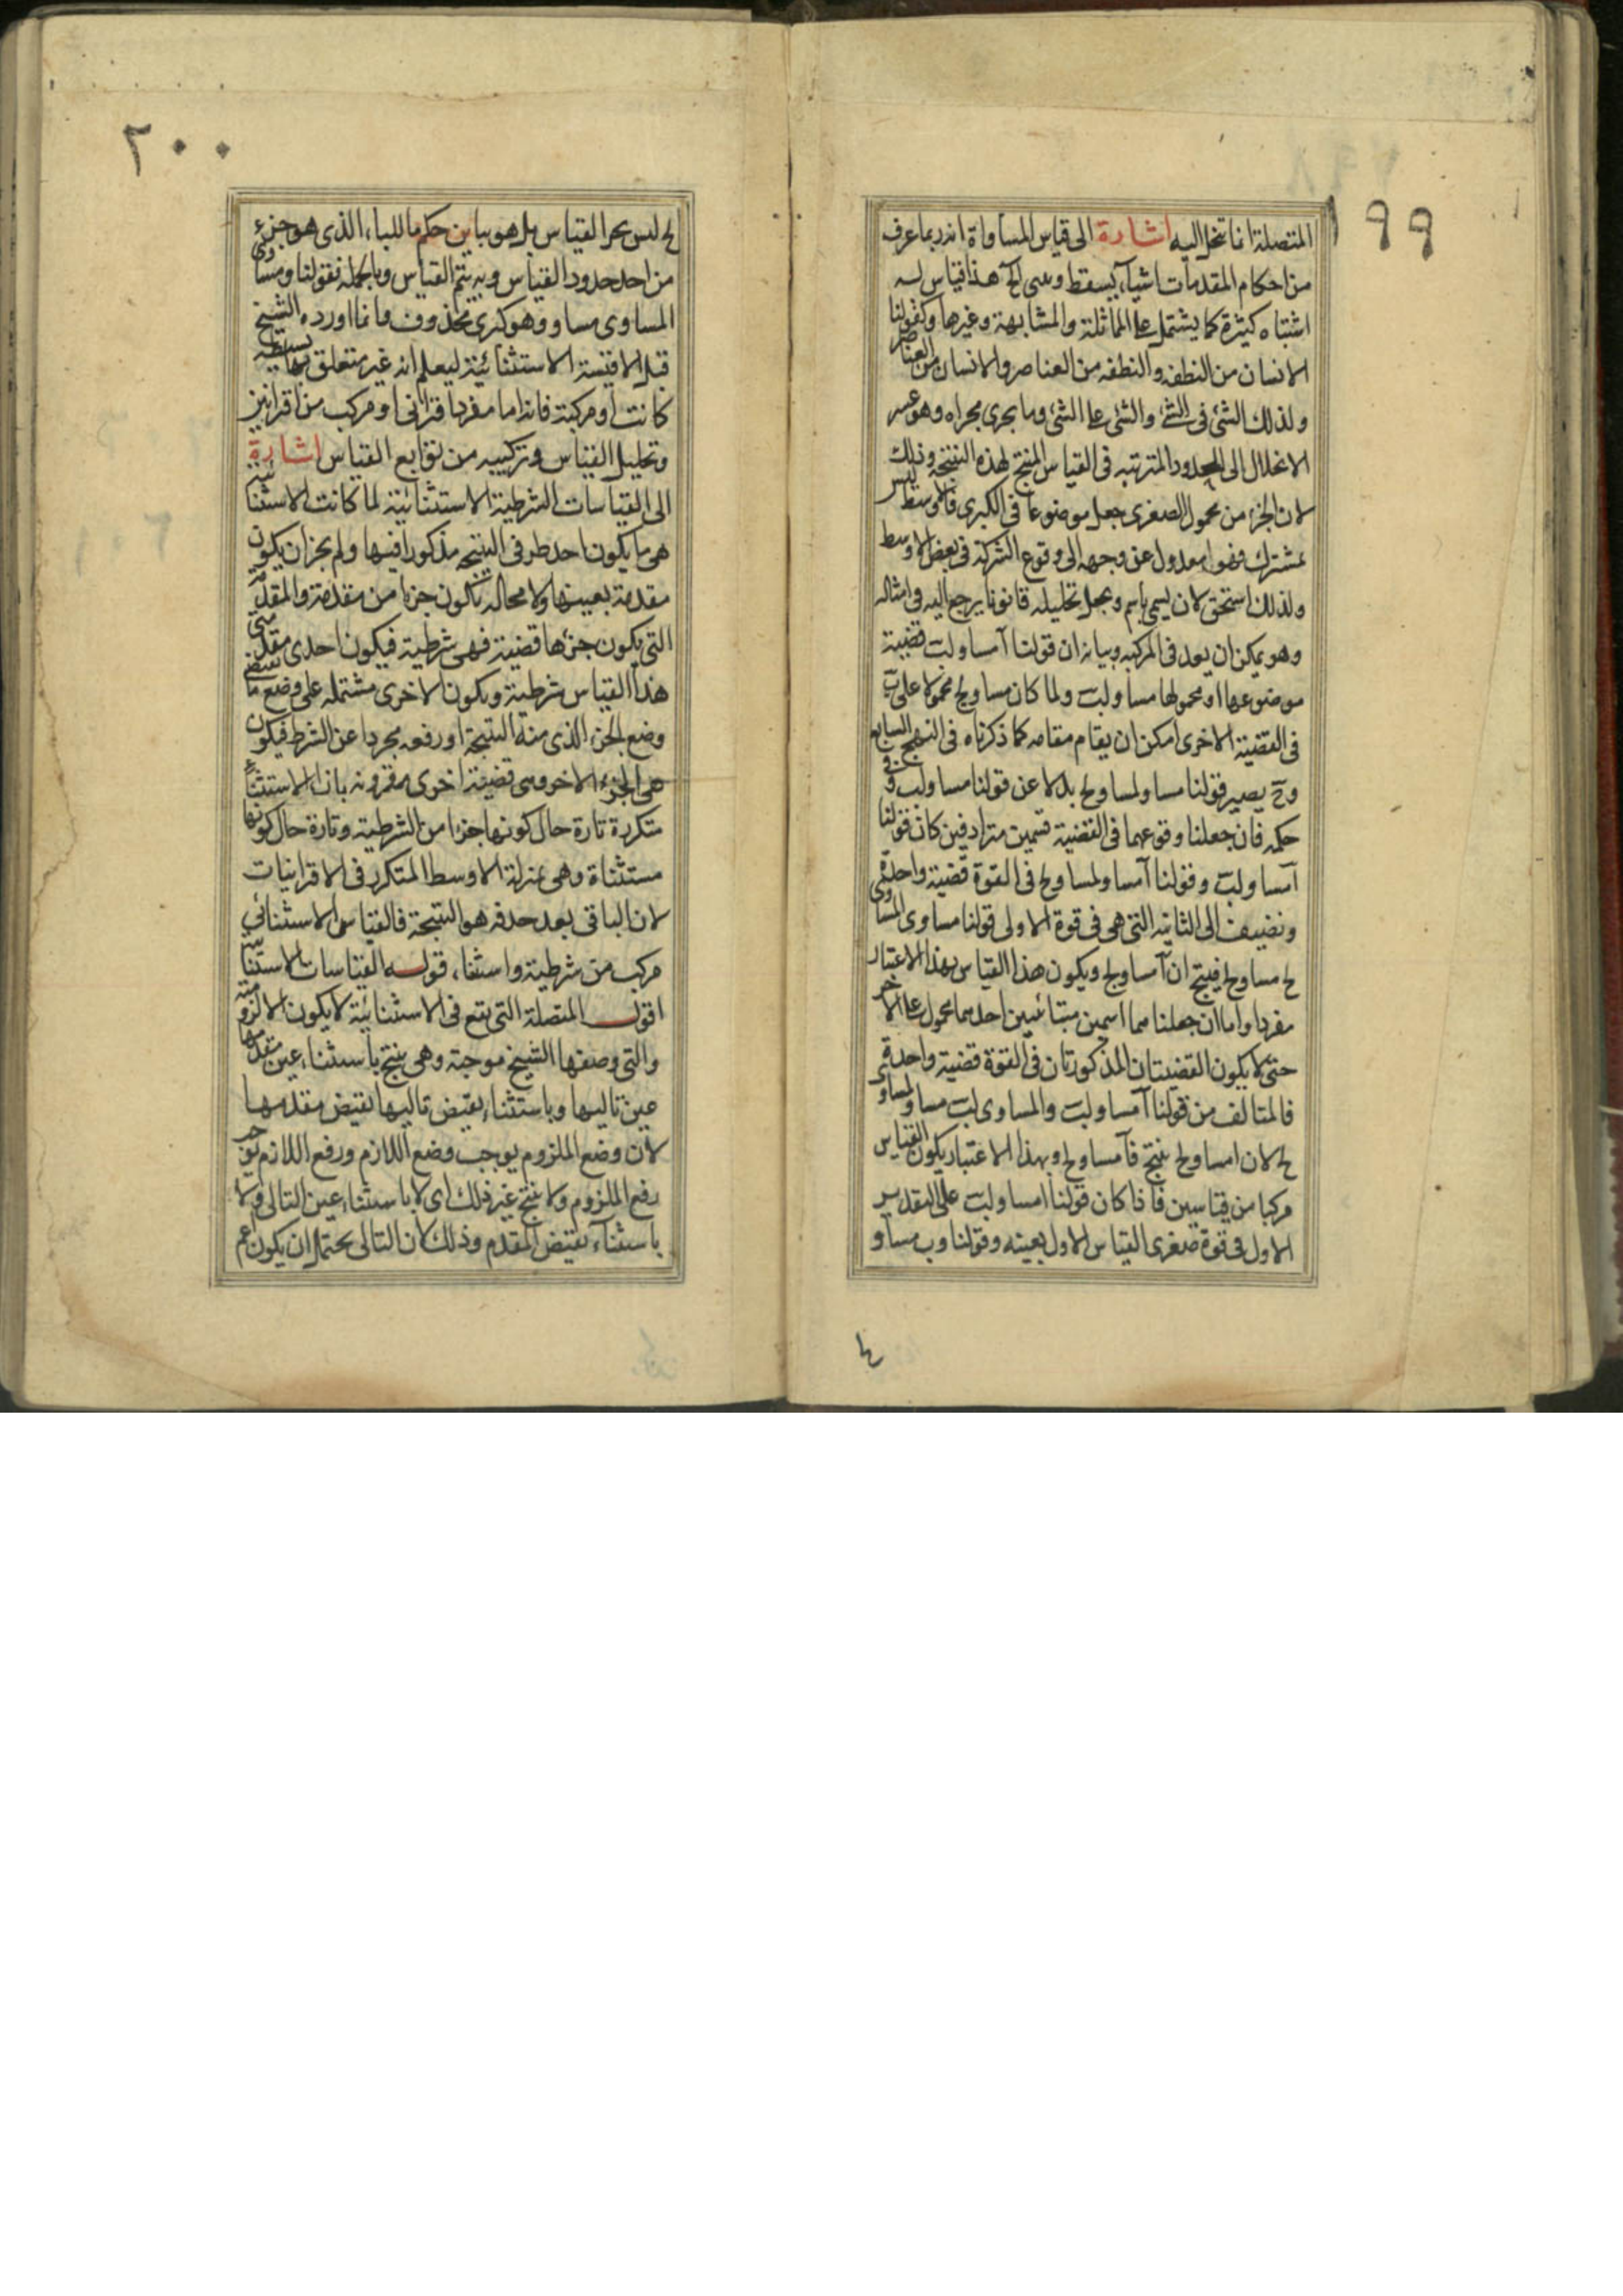 ١٩٩
المتصلة انما تنحل اليه اشارة الى قياس المساواة انه ربما عرف
من احكام المقدمات اشياء يسقط وبنى الخ هذا قياس له
اشتباه كثيرة كما يشتمل على المماثلة والمشابهة وغيرها وكقولنا
الانسان من النطفه والنطفه من العناصر والانسان من العناصر
ولذلك الشئ فى الشئ والشئ على الشئ وما يجرى مجراه وهو عسر
الانحلال الى الحدود المترتبه فى القياس المنتج لهذه النتيجه وذلك
لان الجزء من محمول الصغرى جعل موضوعا فى الكبرى فالاوسط ليس
بمشترك فهو معدول عن وجهه الى وقوع الشركة فى بعض الاوسط
ولذلك استحق لان يسمى باسم ويجعل تحليله قانونا يرجع اليه فى امثاله
وهو يمكن ان يعد فى المركبه وبيانه ان قولنا آ مساو لب قضية
موضوعها ا ومحمولها مساو لب ولما كان مساو لج محمولا على ب
فى القضية الاخرى امكن ان يقام مقامه كما ذكرناه فى النهج السابع
وح يصير قولنا مساو لمساو لج بدلا عن قولنا مساو لب وفى
حكمه فان جعلنا وقوعهما فى القضية قسمين مترادفين كان قولنا
آ مساو لب وقولنا آ مساو لمساو لج فى القوة قضية واحدة
ونضيف الى الثانيه التى هى فى قوة الاولى قولنا مساوى المساوى
لج مساو لج فينتج ان آ مساو لج ويكون هذا القياس بهذا الاعتبار
مفردا واما ان جعلناهما اسمين متباينين احدهما محمول على الاخر
حتى لا يكون القضيتان المذكورتان فى القوة قضية واحدة
فالمتالف من قولنا آ مساو لب والمساوى لب مساو لمساو
لج لان ا مساو لج ينتج فآ مساو لج وبهذا الاعتبار يكون القياس
مركبا من قياسين فاذا كان قولنا ا مساو لب على التقدير
الاول فى قوة صغرى القياس الاول بعينه وقولنا وب مساو
٢٠٠
لج ليس بجزء القياس بل هو بيان حكم ما للباء الذى هو جزء
من احد حدود القياس وبه يتم القياس وبالجمله فقولنا ومساوى
المساوى مساو وهو كبرى محذوف وانما اورده الشيخ
قبل الاقيسة الاستثنائية ليعلم انه غير متعلق بها بسيطه
كانت او مركبة فانه اما مفرد اقترانى او مركب من اقترانيين
وتحليل القياس وتركيبه من توابع القياس اشارة
الى القياسات الشرطية الاستثنائية لما كانت الاستثنائية
هى ما يكون احد طرفى النتيجه مذكورا فيها ولم يجز ان يكون
مقدمة بعينها ولا محاله تكون جزءا من مقدمة والمقدمة
التى يكون جزءها قضية فهى شرطية فيكون احدى مقدمتى
هذا القياس شرطية ويكون الاخرى مشتمله على وضع ما يقتضى
وضع الجزء الذى منه النتيجة او رفعه مجردا عن الشرط فيكون
هى الجزء الاخر وهى قضية اخرى مقرونه باداة الاستثناء
متكررة تارة حال كونها جزءا من الشرطية وتارة حال كونها
مستثناة وهى بمنزلة الاوسط المتكرر فى الاقترانيات
لان الباقى بعد حذفه هو النتيجة فالقياس الاستثنائى
مركب من شرطية واستثناء قوله القياسات الاستثنائية
اقول المتصلة التى يقع فى الاستثنائية لا يكون الا لزومية
والتى وصفها الشيخ موجبة وهى ينتج باستثناء عين مقدمها
عين تاليها وباستثناء نقيض تاليها نقيض مقدمها
لان وضع الملزوم يوجب وضع اللازم ورفع اللازم يوجب
رفع الملزوم ولا ينتج غير ذلك اى لا باستثناء عين التالى ولا
باستثناء نقيض المقدم وذلك لان التالى يحتمل ان يكون اعم